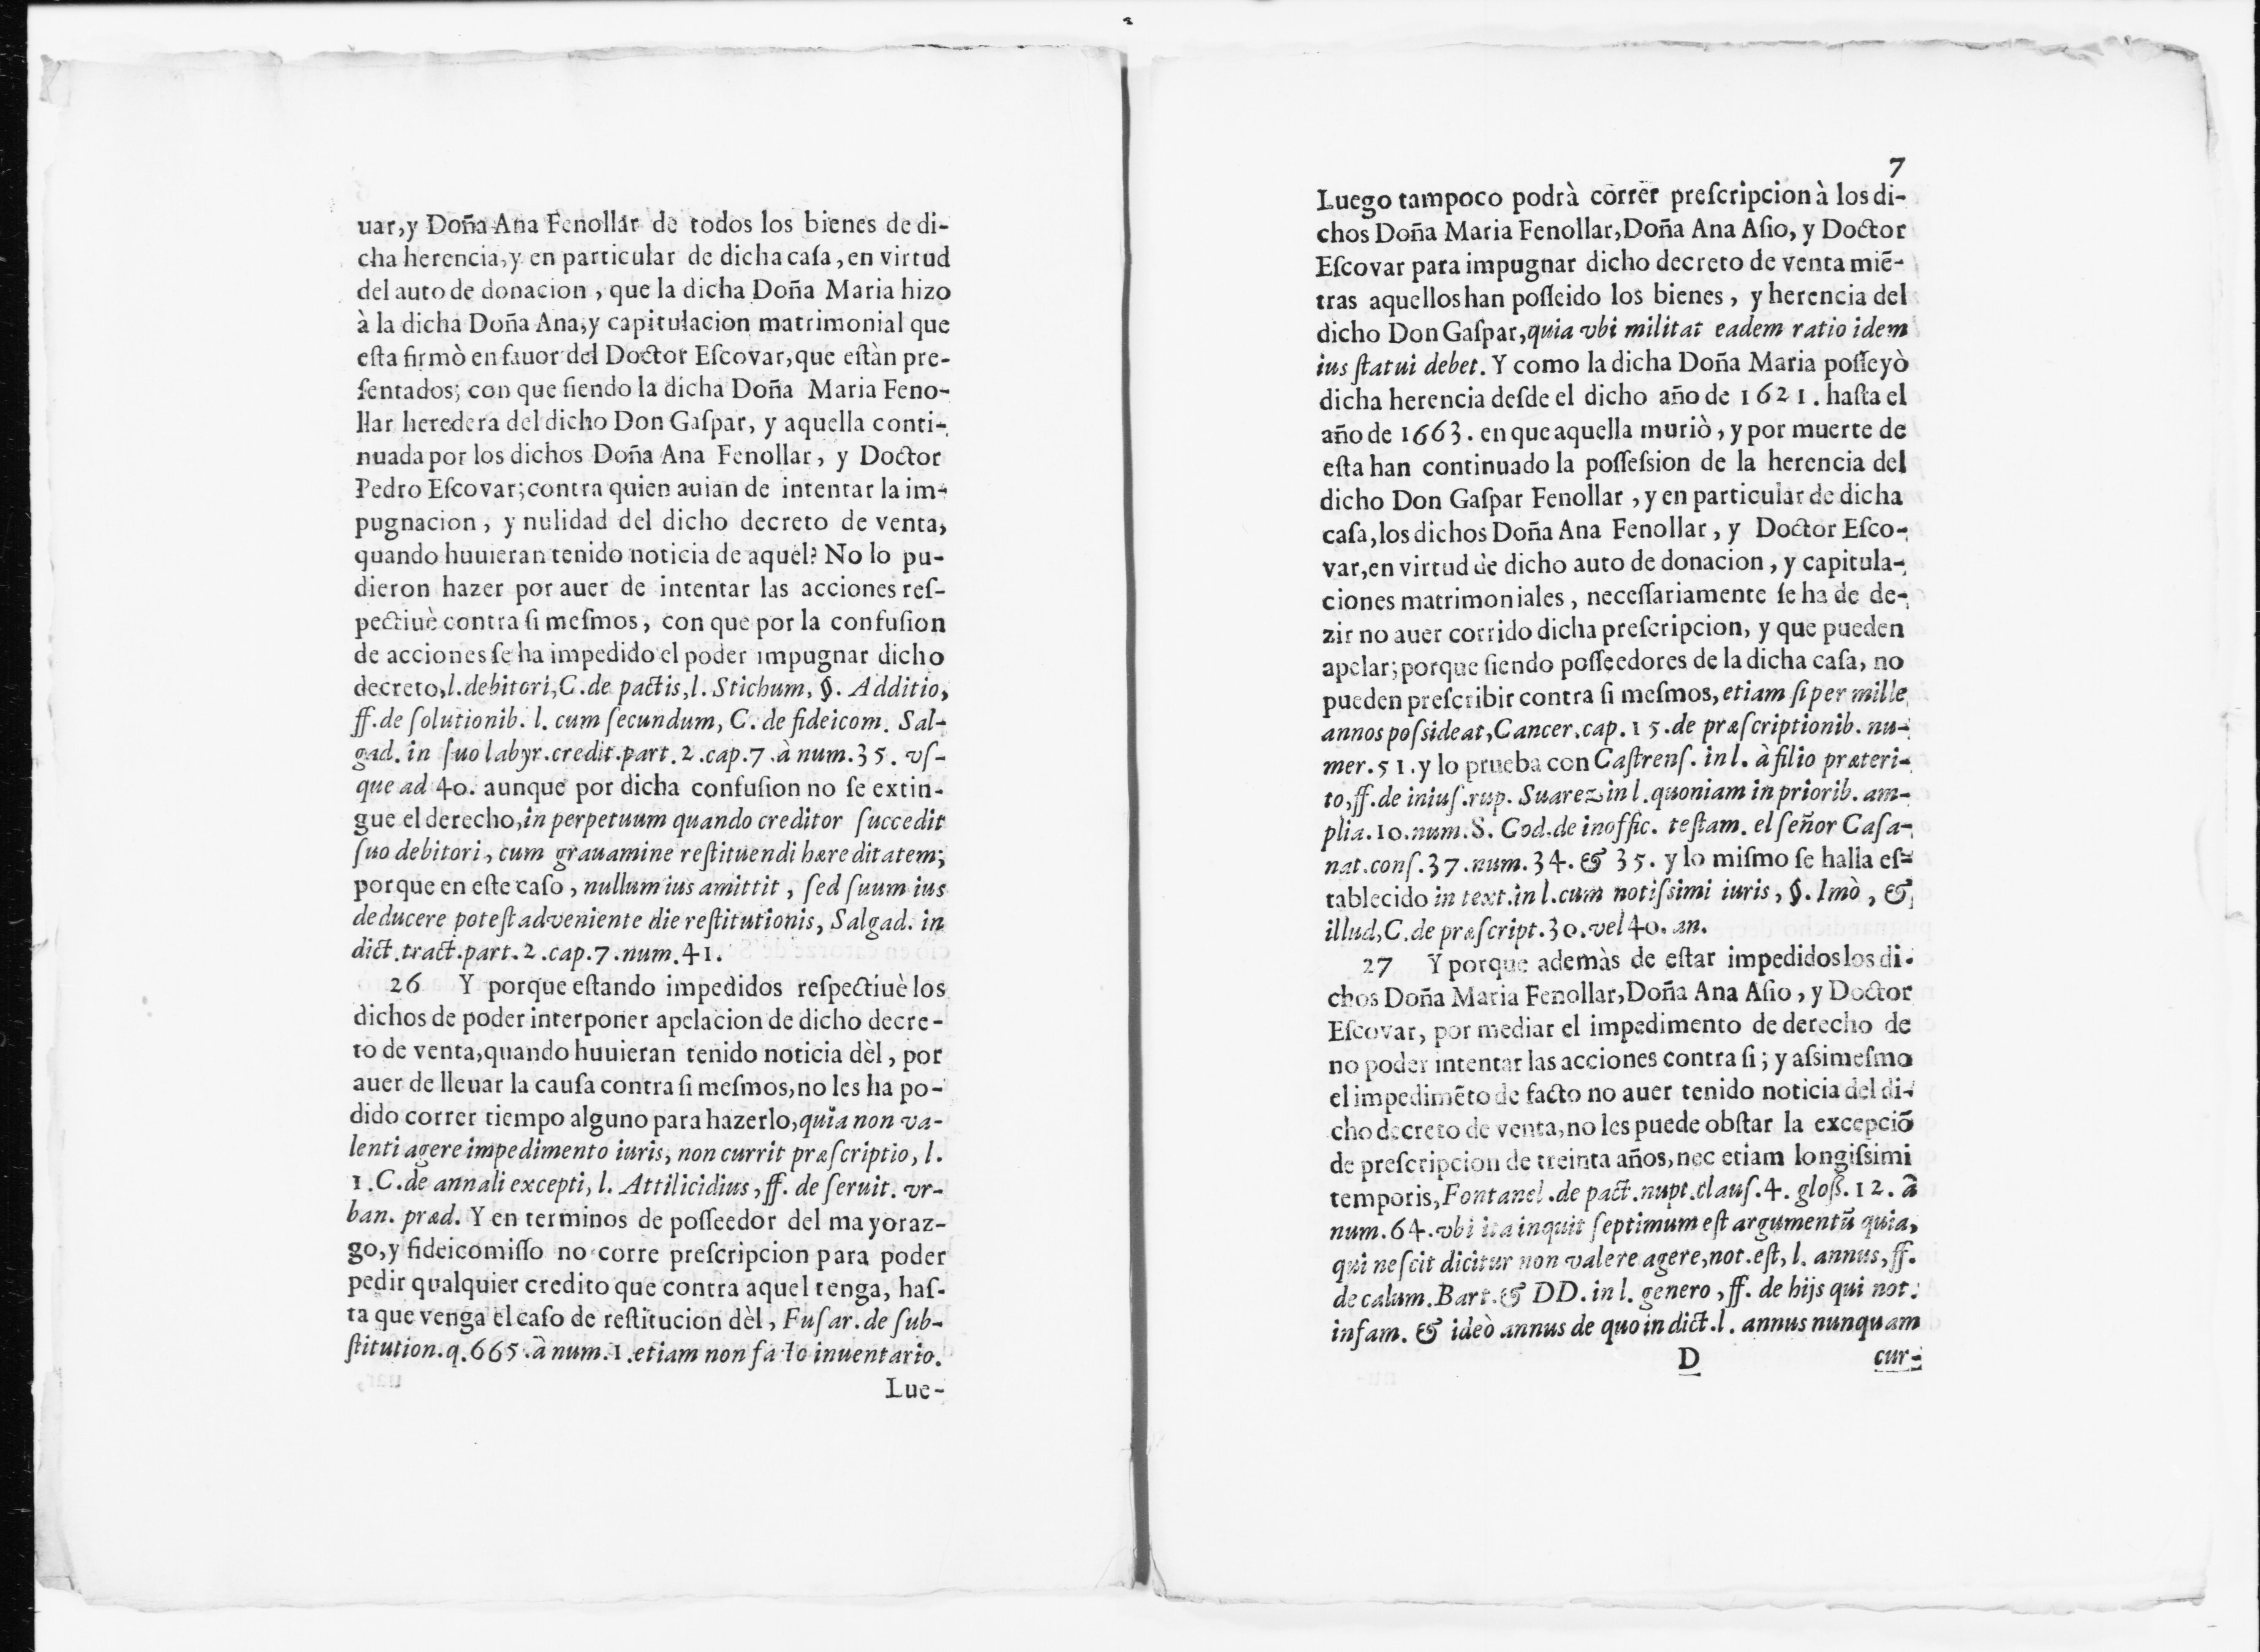 uar,y Doña Ana Fenollar de todos los bienes de di-
cha herencia,y en particular de dicha caſa, en virtud
del auto de donacion, que la dicha Doña Maria hizo
à la dicha Doña Ana,y capitulacion matrimonial que
eſta firmò en fauor del Doctor Eſcovar,que eſtàn pre-
ſentados; con que ſiendo la dicha Doña Maria Feno-
llar heredera del dicho Don Gaſpar, y aquella conti-
nuada por los dichos Doña Ana Fenollar, y Doctor
Pedro Eſcovar;contra quien auian de intentar la im-
pugnacion, y nulidad del dicho decreto de venta,
quando huuieran tenido noticia de aquel? No lo pu-
dieron hazer por auer de intentar las acciones reſ-
pectiuè contra ſi meſmos, con que por la confuſion
de acciones ſe ha impedido el poder impugnar dicho
decreto,l.debitori,C.de pactis,l. Stichum, §. Additio,
ff.de ſolutionib. l. cum ſecundum, C. de fideicom. Sal-
gad. in ſuo labyr.credit.part.2.cap.7.à num.35. vſ-
que ad 40. aunque por dicha confuſion no ſe extin-
gue el derecho,in perpetuum quando creditor ſuccedit
ſuo debitori, cum grauamine reſtituendi hæreditatem;
porque en eſte caſo, nullum ius amittit, ſed ſuum ius
deducere poteſt adveniente die reſtitutionis, Salgad. in
dict.tract.part.2.cap.7.num.41.
26 Y porque eſtando impedidos reſpectiuè los
dichos de poder interponer apelacion de dicho decre-
to de venta,quando huuieran tenido noticia dèl, por
auer de lleuar la cauſa contra ſi meſmos,no les ha po-
dido correr tiempo alguno para hazerlo,quia non va-
lenti agere impedimento iuris, non currit præſcriptio, l.
1.C.de annali excepti, l. Attilicidius, ff. de ſeruit. vr-
ban. præd. Y en terminos de poſſeedor del mayoraz-
go,y fideicomiſſo no corre preſcripcion para poder
pedir qualquier credito que contra aquel tenga, haſ-
ta que venga el caſo de reſtitucion dèl, Fuſar.de ſub-
ſtitution.q.665.à num.1.etiam non inuentario.
Lue-
7
Luego tampoco podrà correr preſcripcion à los di-
chos Doña Maria Fenollar,Doña Ana Aſio, y Doctor
Eſcovar para impugnar dicho decreto de venta miē-
tras aquellos han poſſeido los bienes, y herencia del
dicho Don Gaſpar,quia vbi militat eadem ratio idem
ius ſtatui debet. Y como la dicha Doña Maria poſſeyò
dicha herencia deſde el dicho año de 1621. haſta el
año de 1663. en que aquella muriò, y por muerte de
eſta han continuado la poſſeſsion de la herencia del
dicho Don Gaſpar Fenollar, y en particular de dicha
caſa,los dichos Doña Ana Fenollar, y Doctor Eſco-
var,en virtud de dicho auto de donacion, y capitula-
ciones matrimoniales, neceſſariamente ſe ha de de-
zir no auer corrido dicha preſcripcion, y que pueden
apelar;porque ſiendo poſſeedores de la dicha caſa, no
pueden preſcribir contra ſi meſmos,etiam ſi per mille
annos poſsideat,Cancer.cap.15.de præſcriptionib. nu-
mer.51.y lo prueba con Caſtrenſ. in l. à filio præteri-
to,ff.de iniuſ.rup. Suarez in l.quoniam in priorib. am-
plia.10.num.8. Cod.de inoffic. teſtam. el ſeñor Caſa-
nat.conſ.37.num.34. & 35. y lo miſmo ſe halla eſ-
tablecido in text.in l.cum notiſsimi iuris, §. Imò, &
illud,C.de præſcript.30.vel 40. an.
27 Y porque ademàs de eſtar impedidos los di-
chos Doña Maria Fenollar,Doña Ana Aſio, y Doctor
Eſcovar, por mediar el impedimento de derecho de
no poder intentar las acciones contra ſi; y aſsimeſmo
el impedimēto de facto no auer tenido noticia del di-
cho decreto de venta,no les puede obſtar la excepciō
de preſcripcion de treinta años,nec etiam longiſsimi
temporis,Fontanel.de pact.nupt.clauſ.4. gloß.12. à
num.64.vbi ita inquit ſeptimum eſt argumentū quia,
qui neſcit dicitur non valere agere,not.eſt, l. annus, ff.
de calum.Bart.& DD. in l. genero, ff. de hijs qui not.
infam. & ideò annus de quo in dict.l. annus nunquam
D cur-